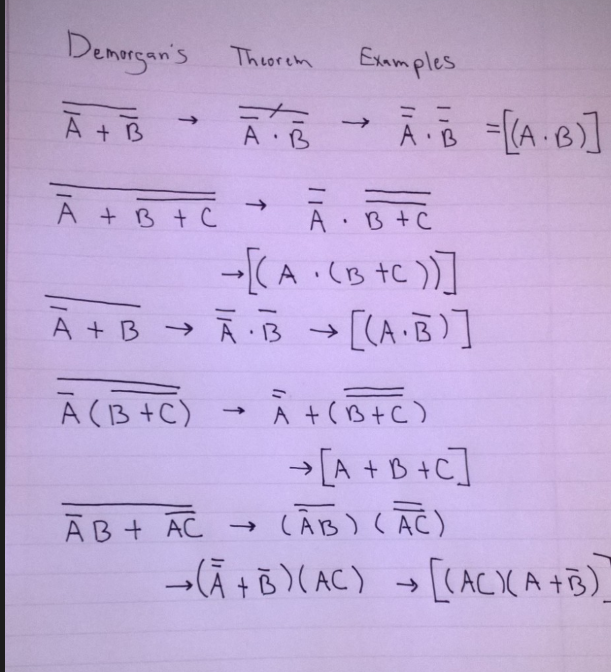 Demorgan's Theorem Examples
$\overline{\overline{A} + \overline{B}}$ → $\overline{\overline{A} \cdot \overline{B}}$ → $\overline{\overline{A}} \cdot \overline{\overline{B}}$ = [(A · B)]
$\overline{\overline{A} + \overline{B + C}}$ → $\overline{\overline{A}} \cdot \overline{\overline{B + C}}$
→ [( A · (B + C))]
$\overline{\overline{A} + B}$ → $\overline{\overline{A}} \cdot \overline{B}$ → [(A · $\overline{B}$)]
$\overline{\overline{A}(\overline{B + C})}$ → $\overline{\overline{A}} + (\overline{\overline{B + C}})$
→ [A + B + C]
$\overline{\overline{A}B + \overline{AC}}$ → $(\overline{\overline{A}B})(\overline{\overline{AC}})$
→ $(\overline{\overline{A}} + \overline{B})(AC)$ → [(AC)(A + $\overline{B}$)]